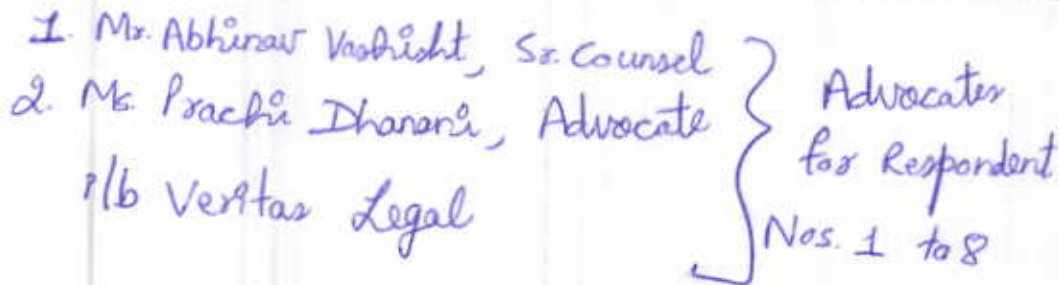 1. Mr. Abhinav Vashisht, Sr. Counsel
2. Ms. Prachi Dhanani, Advocate
i/b Veritas Legal
Advocates
for Respondent
Nos. 1 to 8